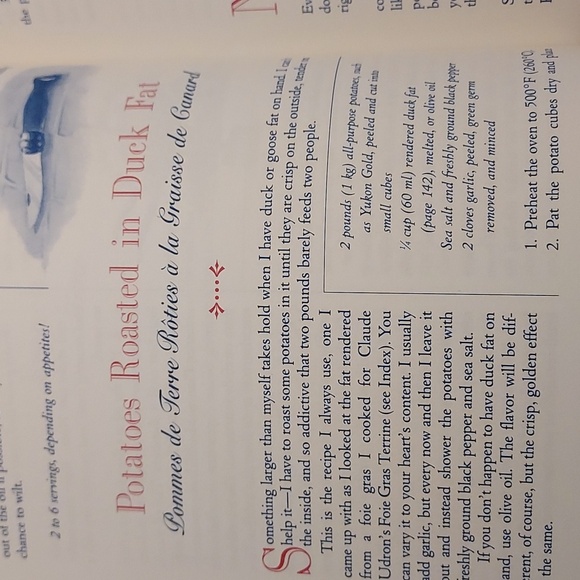 out of the oil
chance to wilt.
2 to 6 servings, depending on appetites!
Potatoes Roasted in Duck Fat
Pommes de Terre Rôties à la Graisse de Canard
Something larger than myself takes hold when I have duck or goose fat on hand. I can't
help it—I have to roast some potatoes in it until they are crisp on the outside, tender in
the inside, and so addictive that two pounds barely feeds two people.
This is the recipe I always use, one I
came up with as I looked at the fat rendered
from a foie gras I cooked for Claude
Udron's Foie Gras Terrine (see Index). You
can vary it to your heart's content. I usually
add garlic, but every now and then I leave it
out and instead shower the potatoes with
freshly ground black pepper and sea salt.
If you don't happen to have duck fat on
hand, use olive oil. The flavor will be dif-
ferent, of course, but the crisp, golden effect
the same.
2 pounds (1 kg) all-purpose potatoes, such
as Yukon Gold, peeled and cut into
small cubes
¼ cup (60 ml) rendered duck fat
(page 142), melted, or olive oil
Sea salt and freshly ground black pepper
2 cloves garlic, peeled, green germ
removed, and minced
1. Preheat the oven to 500°F (260°C).
2. Pat the potato cubes dry and